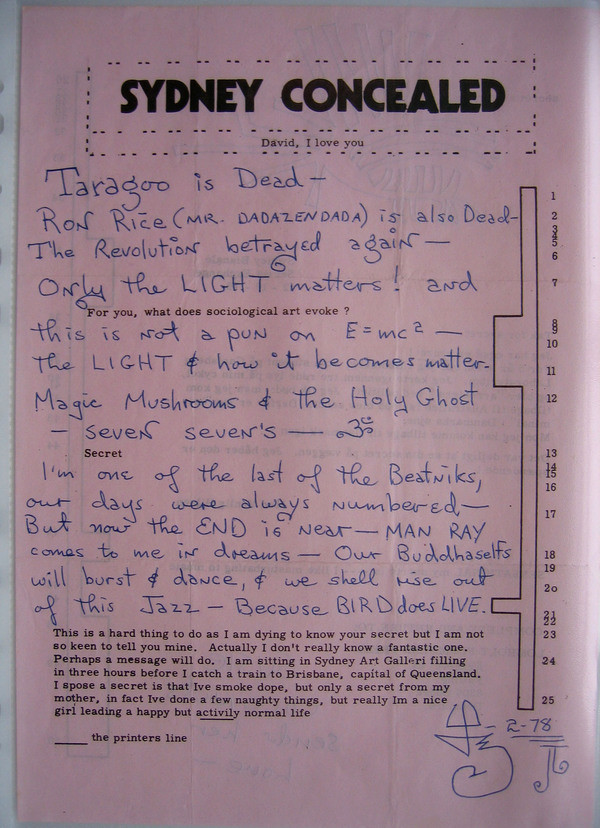 SYDNEY CONCEALED
David, I love you
Taragoo is Dead—
RON RICE (MR. DADAZENDADA) is also Dead—
The Revolution betrayed again—
Only the LIGHT matters! and
For you, what does sociological art evoke ?
this is not a pun on E=mc² —
the LIGHT & how it becomes matter.
Magic Mushrooms & the Holy Ghost
— seven seven's — ॐ
Secret
I'm one of the last of the Beatniks,
our days were always numbered,—
But now the END is near— MAN RAY
comes to me in dreams — Our Buddhaselfs
will burst & dance, & we shell rise out
of this Jazz — Because BIRD does LIVE.
This is a hard thing to do as I am dying to know your secret but I am not
so keen to tell you mine. Actually I don't really know a fantastic one.
Perhaps a message will do. I am sitting in Sydney Art Galleri filling
in three hours before I catch a train to Brisbane, capital of Queensland.
I spose a secret is that Ive smoke dope, but only a secret from my
mother, in fact Ive done a few naughty things, but really Im a nice
girl leading a happy but activily normal life
____ the printers line
1
2
3
4
5
6
7
8
9
10
11
12
13
14
15
16
17
18
19
20
21
22
23
24
25
2-78